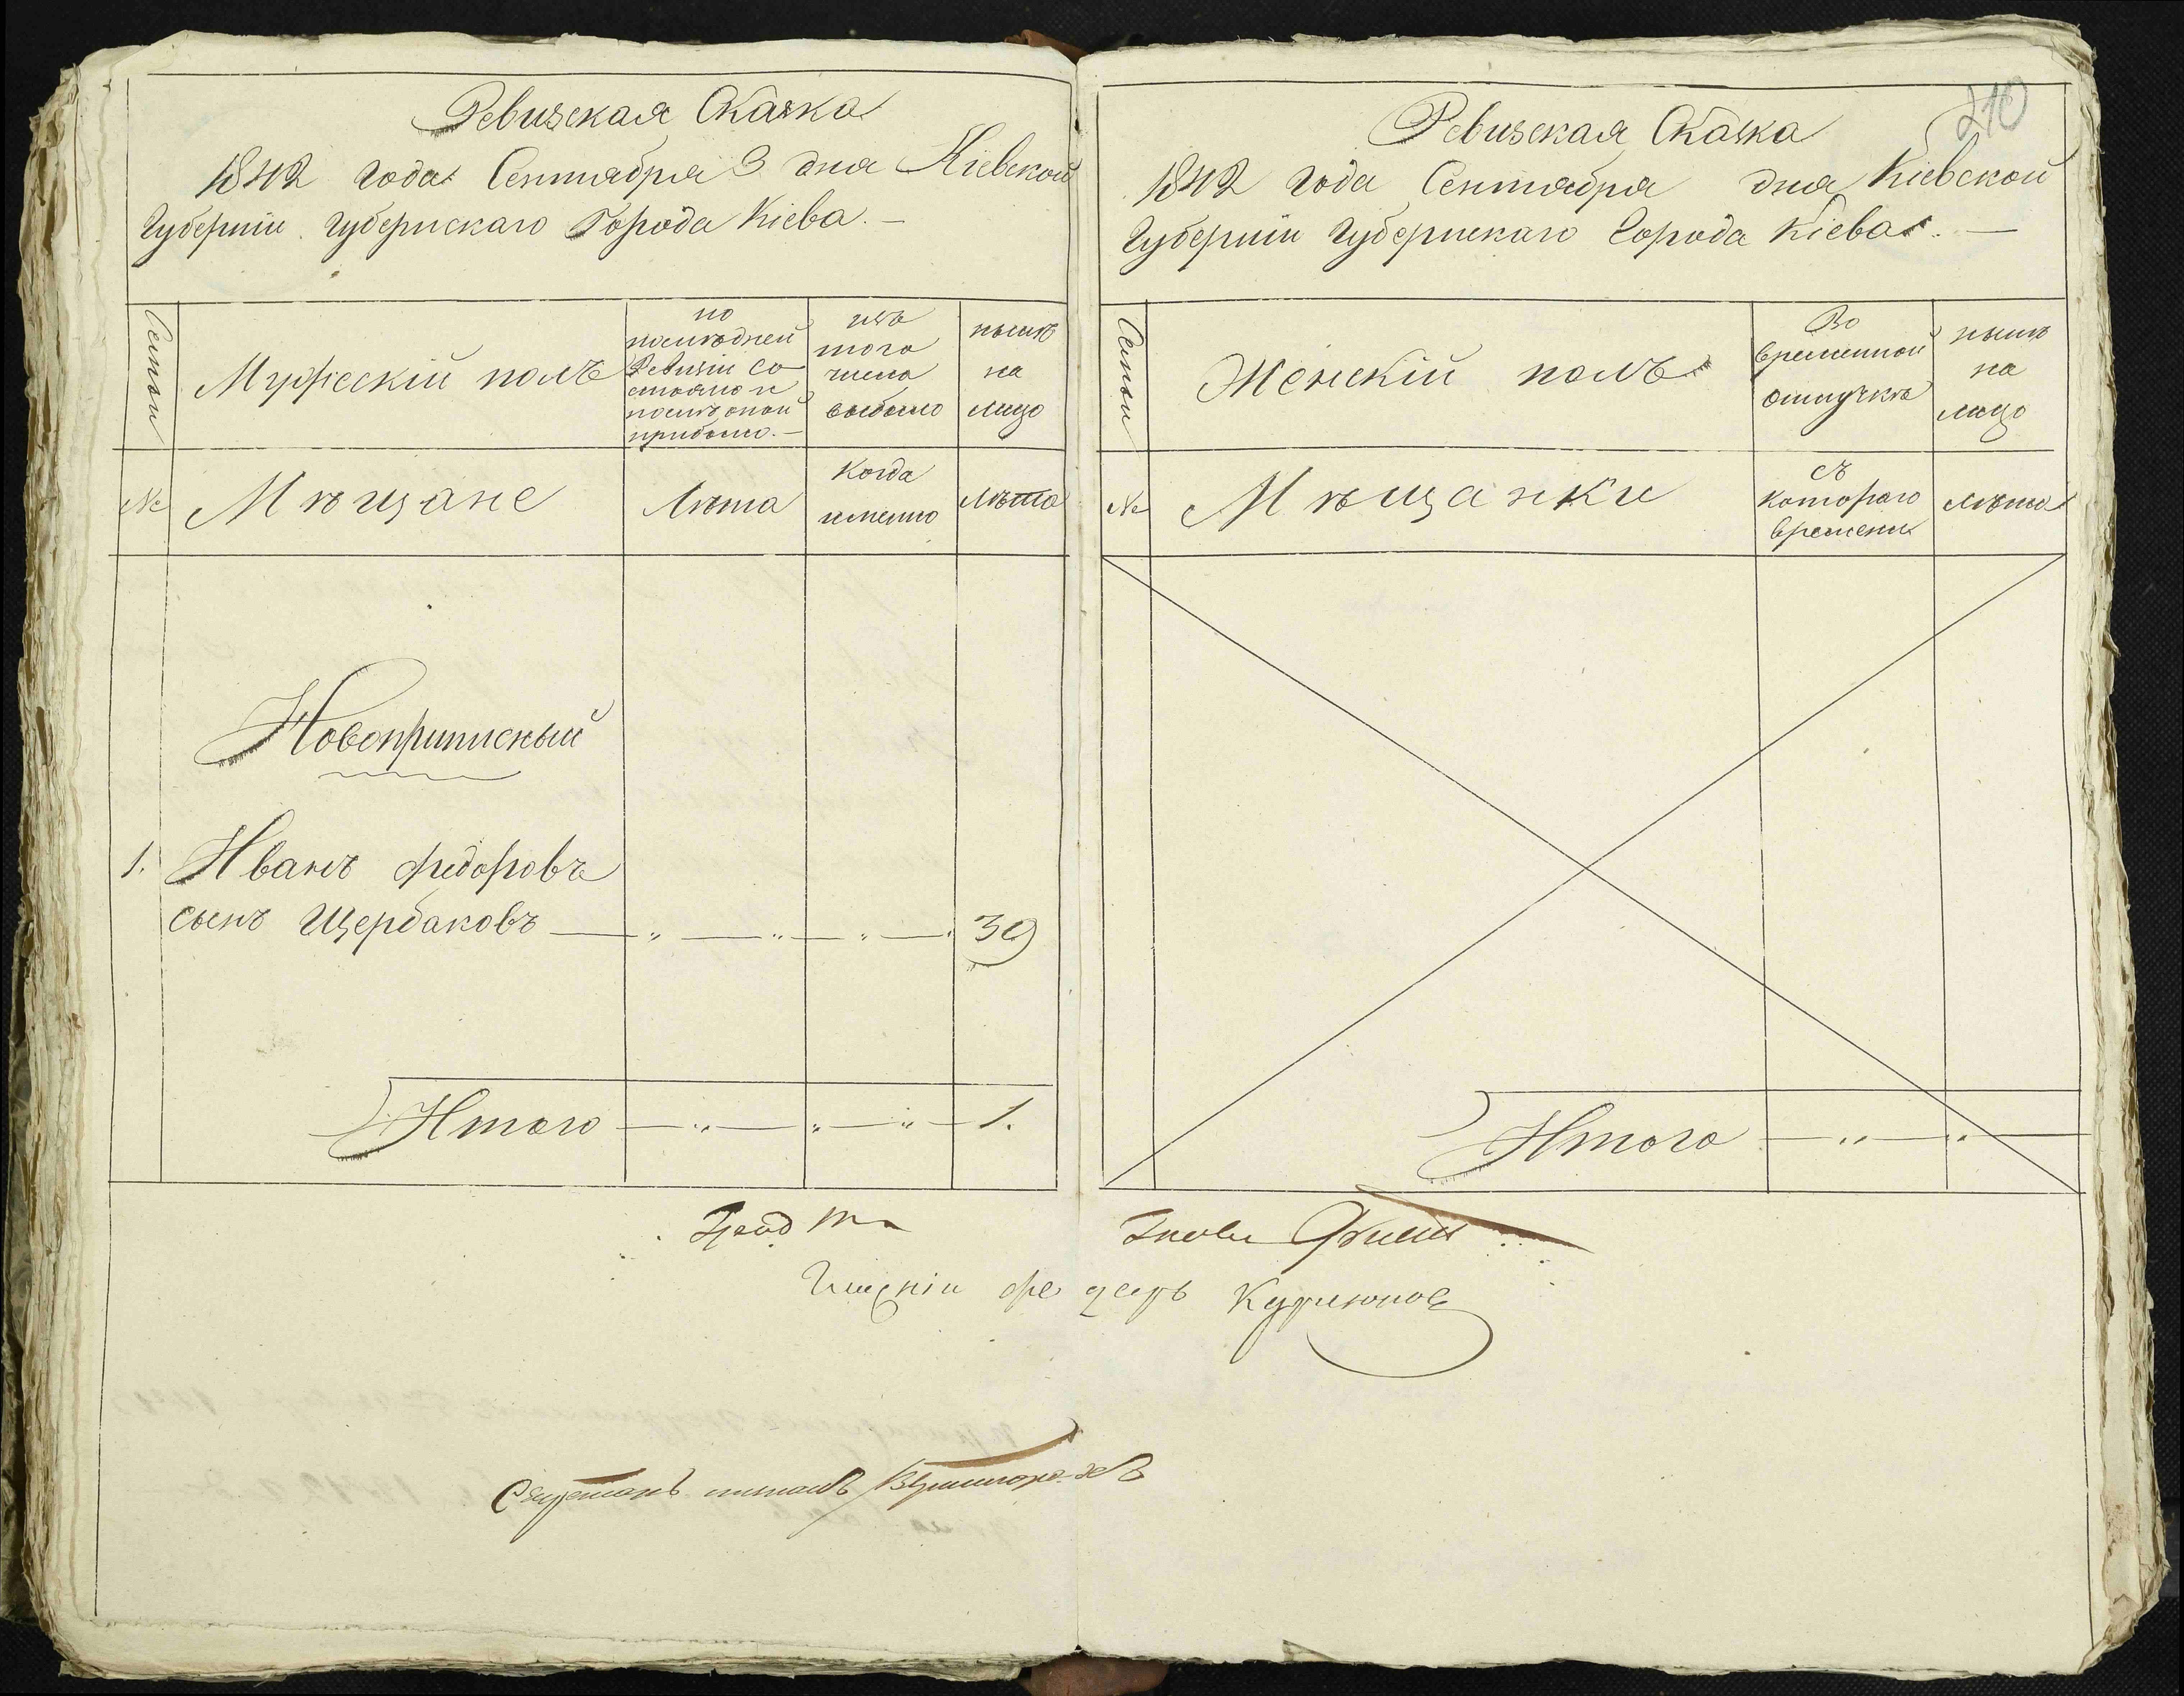 Ревизская Сказка
1842 года Сентября 3 дня Кіевской
Губерніи Губернскаго Города Кіева. —
Семьи
Мужескій полъ
по
последней
Ревизіи со-
стояло и
после оной
прибыло. —
изъ
того
числа
выбыло
ныне
на
лицо
№
Мѣщане
Лѣта
Когда
именно
Лѣта
Новоприписный
1. Иванъ Федоровъ
сынъ Щербаковъ — " — " — " — " 39
Итого — " — " — " — 1.
210
Ревизская Сказка
1842 года Сентября дня Кіевской
Губерніи Губернскаго Города Кіева. —
Семьи
Женскій полъ
Во
временной
отлучкѣ
ныне
на
лицо
№
Мѣщанки
съ
котораго
времени
Лѣта
Итого — " — " —